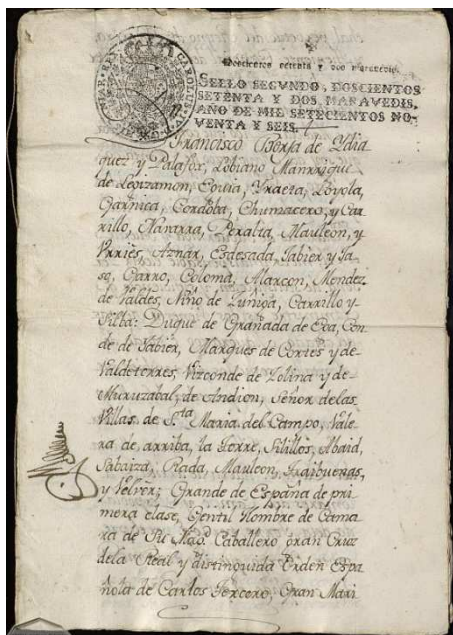 CAROLUS IV
Doscientos setenta y dos maravedis.
SELLO SEGVNDO, DOSCIENTOS
SETENTA Y DOS MARAVEDIS,
AÑO DE MIL SETECIENTOS NO-
VENTA Y SEIS.
Francisco Borja de Ydia
quez y Palafox, Lobiano Manrrique
de Legizamon, Eguia, Yraeta, Loyola,
Garnica, Cordoba, Chumacero, y Car
rillo, Navarra, Peralta, Mauleon, y
Vrries, Aznar, Esdesada, Xabier y Ja
so, Garro, Coloma, Alarcon, Mendez
de Valdes, Niño de Zuñiga, Carrillo y
Silba: Duque de Grañada de Ega, Con
de de Xabier, Marques de Cortes y de
Valdetorres, Vizconde de Zolina y de
Muruzabal, de Andion, Señor de las
Villas de S.ta Maria del Campo, Vale
ra de arriba, la Torre, Silillos, Abaid,
Sabaiza, Rada, Mauleon, Traibuenas,
y Velver; Grande de España de pri
mera clase, Gentil Hombre de Cama
ra de Su Mag.d Caballero gran Cruz
de la Real y distinguida Orden Espa
ñola de Carlos Tercero, Gran Mari